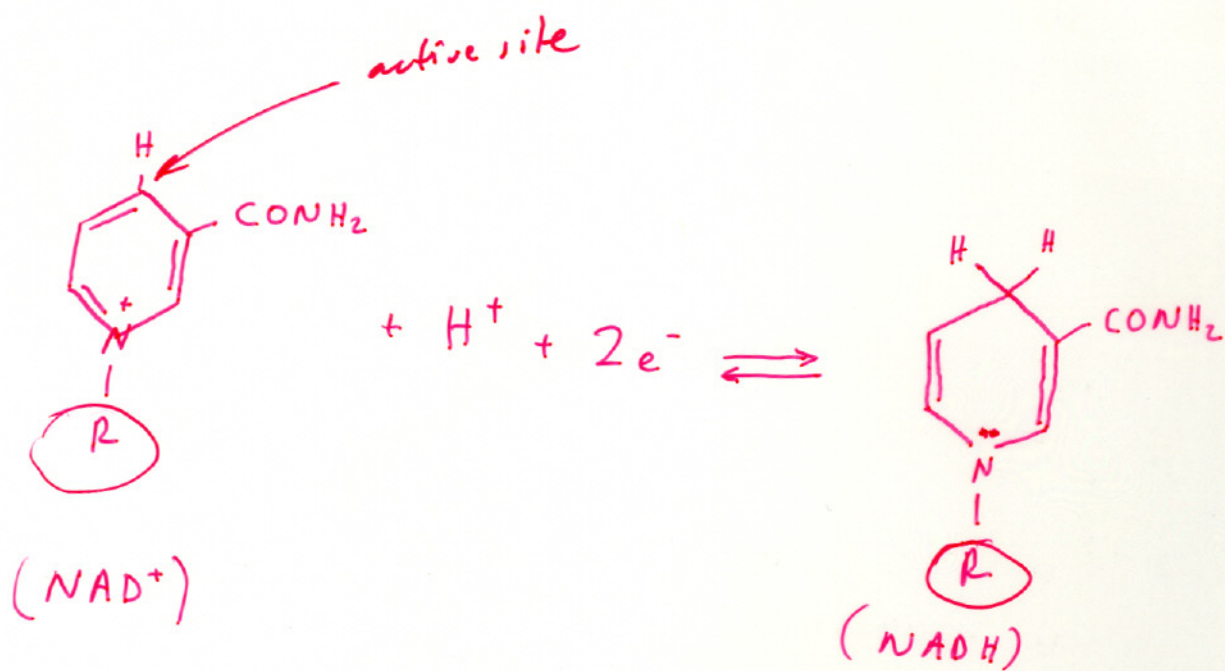 active site
H
CONH₂
+
N
R
(NAD⁺)
+ H⁺ + 2e⁻ ⇌
H H
CONH₂
N
R
(NADH)